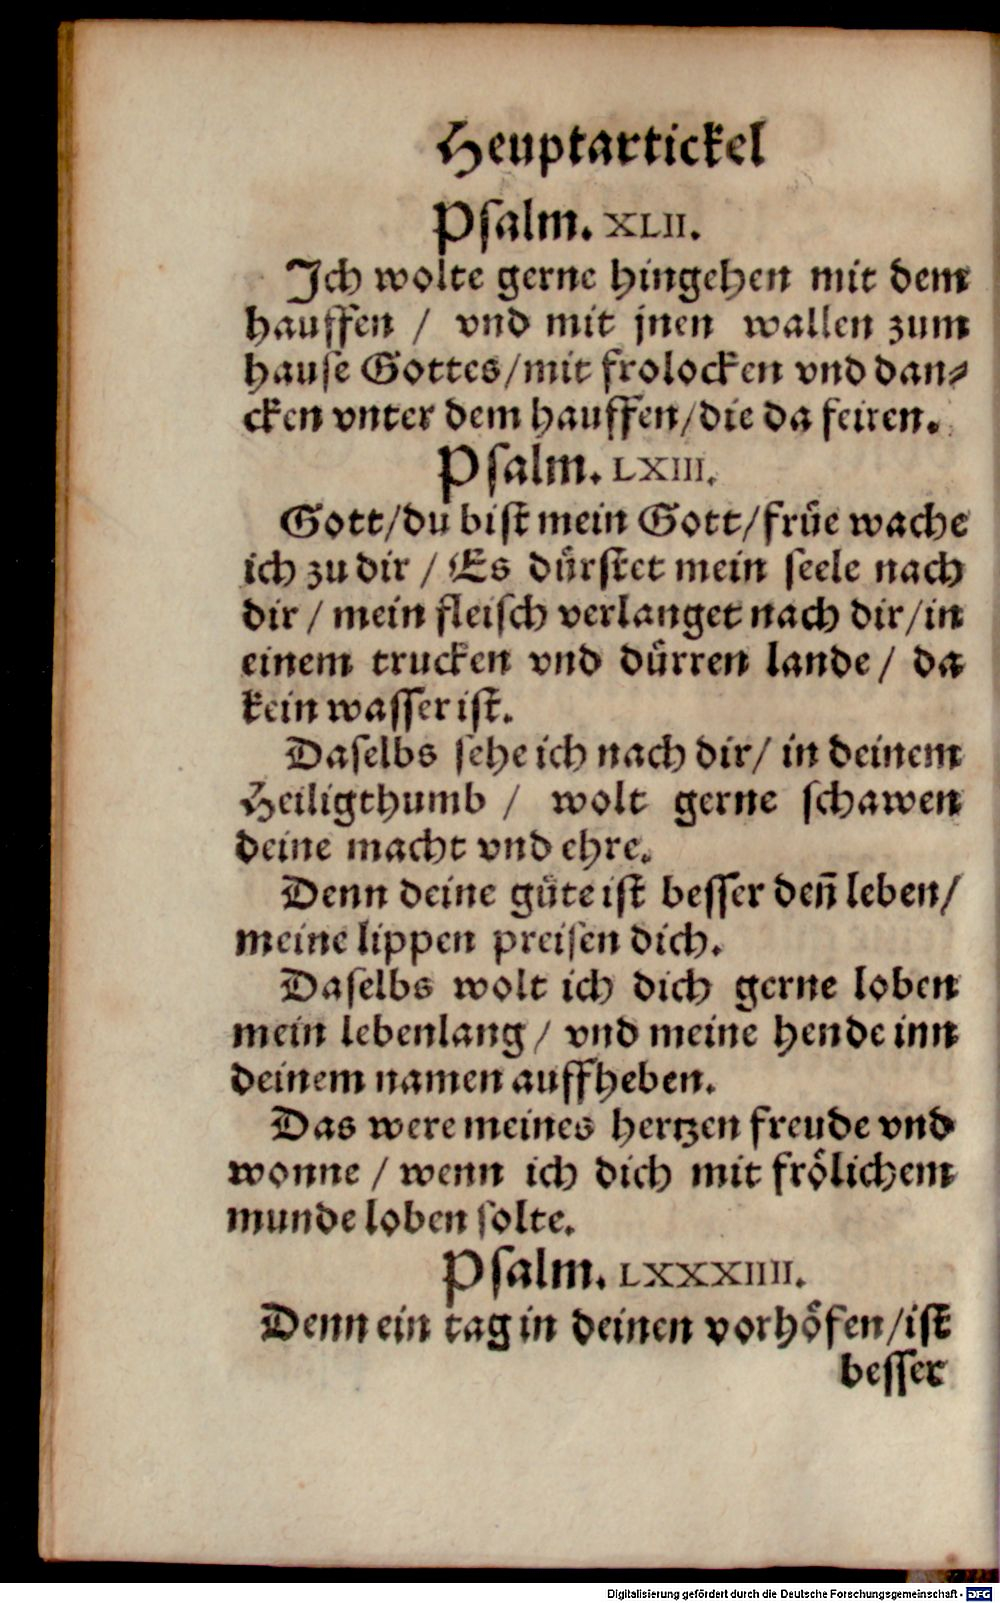 Heuptartickel
Psalm. XLII.
Ich wolte gerne hingehen mit dem
hauffen / vnd mit jnen wallen zum
hause Gottes/mit frolocken vnd dan⸗
cken vnter dem hauffen/die da feiren.
Psalm. LXIII.
Gott/du bist mein Gott/früe wache
ich zu dir / Es dürstet mein seele nach
dir / mein fleisch verlanget nach dir/in
einem trucken vnd dürren lande / da
kein wasser ist.
Daselbs sehe ich nach dir/ in deinem
Heiligthumb / wolt gerne schawen
deine macht vnd ehre.
Denn deine güte ist besser deñ leben/
meine lippen preisen dich.
Daselbs wolt ich dich gerne loben
mein lebenlang / vnd meine hende inn
deinem namen auffheben.
Das were meines hertzen freude vnd
wonne / wenn ich dich mit frölichem
munde loben solte.
Psalm. LXXXIIII.
Denn ein tag in deinen vorhöfen/ist
besser
Digitalisierung gefördert durch die Deutsche Forschungsgemeinschaft - DFG